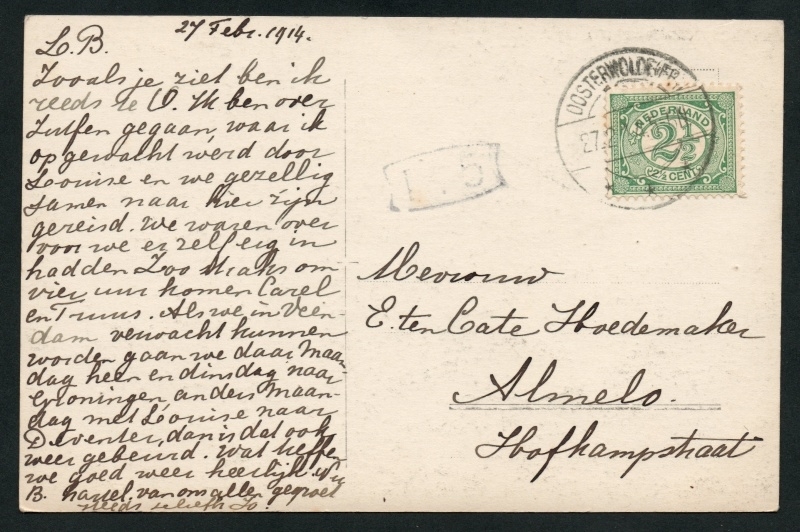 27 Febr. 1914.
L. B.
Zooals je ziet ben ik
reeds te O. Ik ben over
Zutfen gegaan, waar ik
opgewacht werd door
Louise en we gezellig
samen naar hier zijn
gereisd. We waren over
voor we er zelf erg in
hadden Zoo straks om
vier uur komen Carel
en Truus. Als we in Veen-
dam verwacht kunnen
worden gaan we daar Maan-
dag heen en dinsdag naar
Groningen anders Maan-
dag met Louise naar
Deventer, dan is dat ook
weer gebeurd. Wat treffen
we goed weer heerlijk. Nu
B. hartel. van ons allen gegroet
steeds je liefh. Jo.
OOSTERWOLDE
27.2
NEDERLAND
2½
(2½ CENT)
Mevrouw
E. ten Cate Hoedemaker
Almelo.
Hofkampstraat